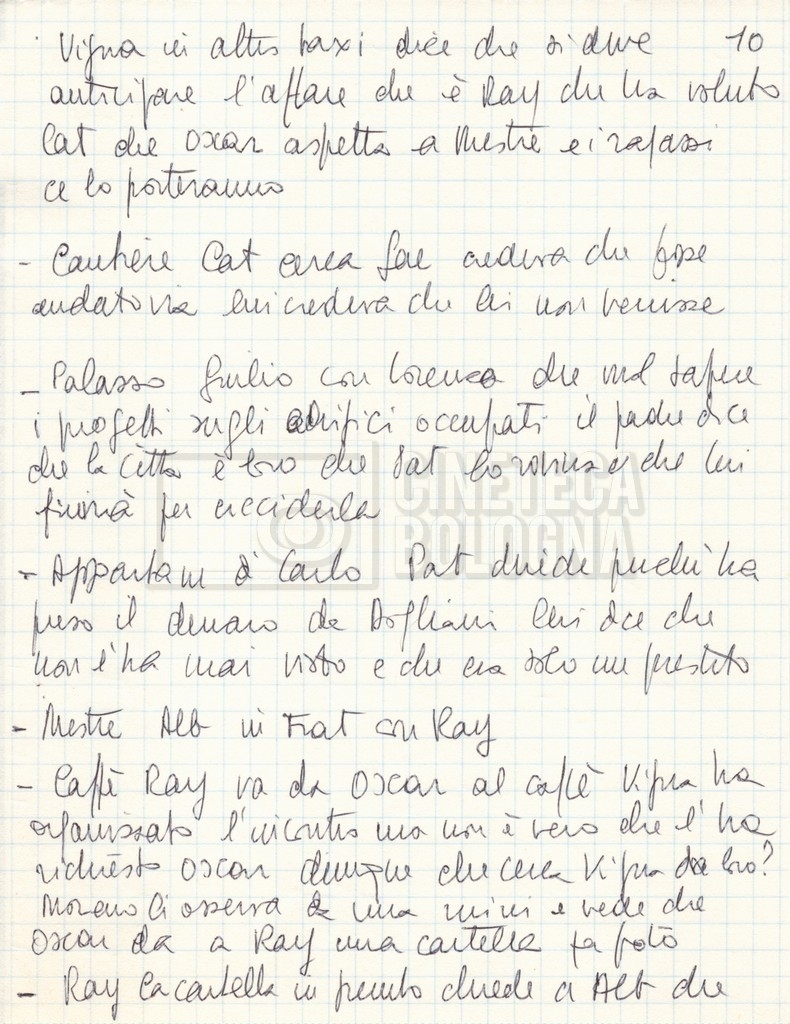 Vigna in altro taxi dice che si deve 10
anticipare l'affare che è Ray che ha voluto
Cat che Oscar aspetta a Mestre e i ragazzi
ce lo porteranno
- Cantiere Cat cerca credeva che fosse
andato via lui credeva che lei non venisse
- Palazzo Giulio con Lorenzo che vuol sapere
i progetti sugli edifici occupati il padre dice
che la città è loro che lo rovina e che lui
finirà per ucciderla
- Appartam di Carlo Pat chiede perché ha
preso il denaro da lui dice che
non l'ha mai visto e che era solo un prestito
- Mestre Alb in Fiat con Ray
- Caffè Ray va da Oscar al caffè Vigna ha
organizzato l'incontro ma non è vero che l'ha
richiesto Oscar dunque che cerca Vigna da loro?
Moreno li osserva da una mini e vede che
Oscar da a Ray una cartella fa foto
- Ray la cartella in chiede a Alb che
CINETECA
BOLOGNA